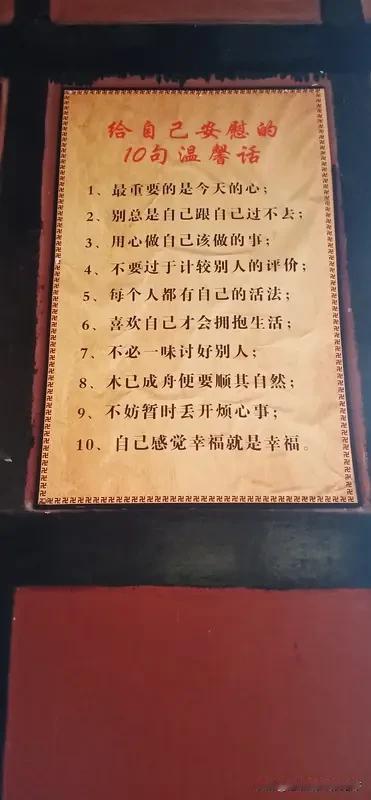 给自己安慰的
10句温馨话
1、最重要的是今天的心；
2、别总是自己跟自己过不去；
3、用心做自己该做的事；
4、不要过于计较别人的评价；
5、每个人都有自己的活法；
6、喜欢自己才会拥抱生活；
7、不必一味讨好别人；
8、木已成舟便要顺其自然；
9、不妨暂时丢开烦心事；
10、自己感觉幸福就是幸福。